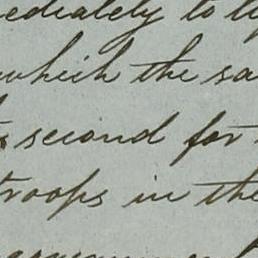 mediately to
which the sa
second for
troops in the